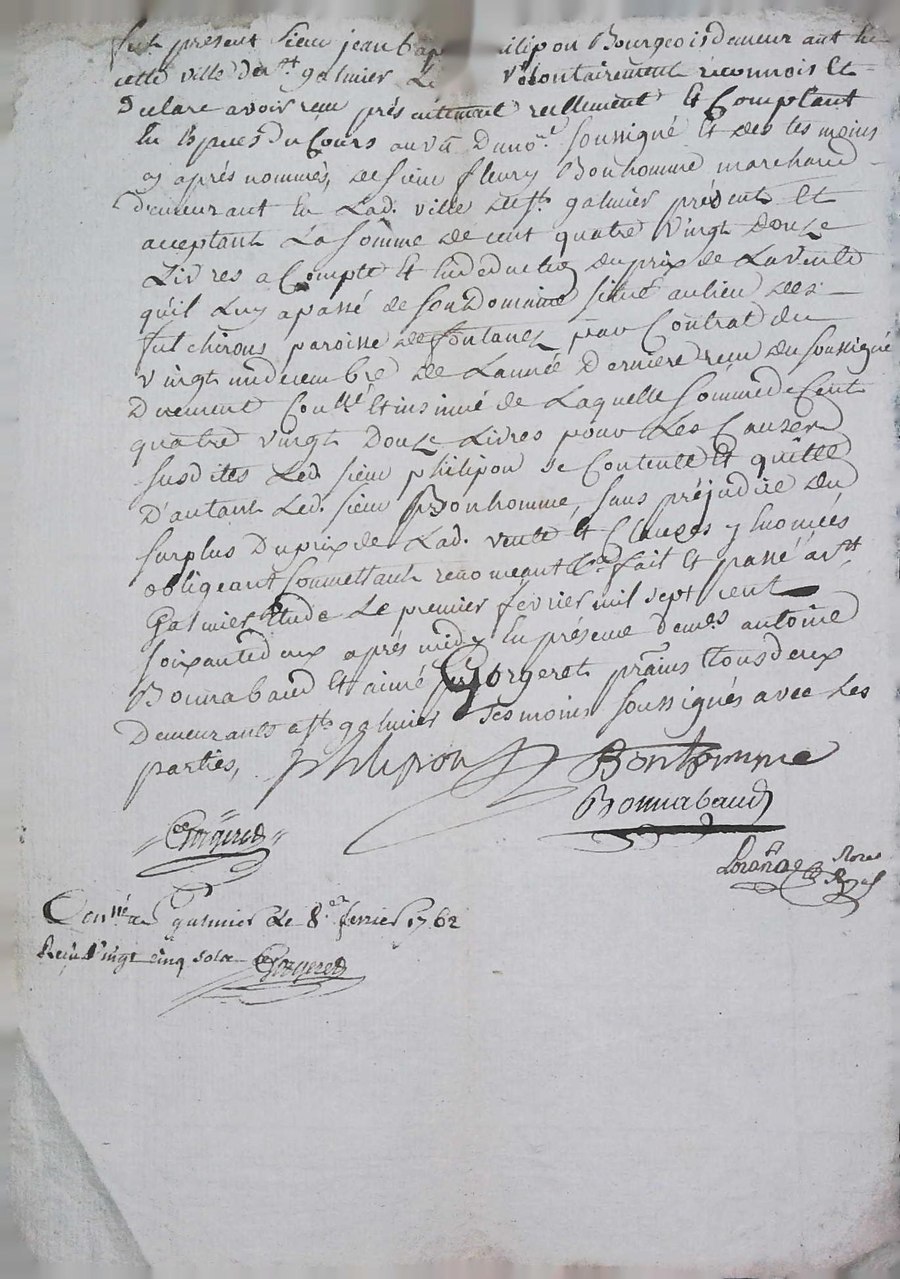 fut présent sieur jean bap ilipon Bourgeois demeurant en
cette ville de st galmier Le volontairement reconnois Et
declare avoir reçu présentement reellement Et Comptant
En Espèces du Cours au vû du no.re soussigné Et des temoins
cy aprés nommés, de sieur fleury Bonhomme marchand
demeurant En Lad. ville de st. galmier présent Et
acceptant La somme de cent quatre vingt douze
Livres a Compte Et En deduction du prix de La vente
qu'il Luy a passé de son Domaine situé au lieu des
futchirons paroisse de fontanes par Contrat du
vingt un decembre de Lannée derniere reçu du soussigné
Duement Con.llé Et insinué de Laquelle somme de Cent
quatre vingt douze Livres pour Les Causes
susdites Led. sieur philipon se Contente Et quitte
D'autant Led. sieur Bonhomme, sans préjudice du
surplus du prix de Lad. vente Et Clauses y Enoncées
obligeant soumettant renonceant fait Et passé a st.
Galmier Etude Le premier février mil sept cent
soixante deux aprés midy En présence de mes. antoine
Bonnabaud Et aimé Gorgeret pra.ins tous deux
Demeurants a st. galmier temoins soussignés avec Les
parties,
philipon Bonhomme
Bonnabaud
Gorgeret
Con.llé a st galmier Le 8.e fevrier 1762
Reçu Vingt cinq sols
Gorgeret